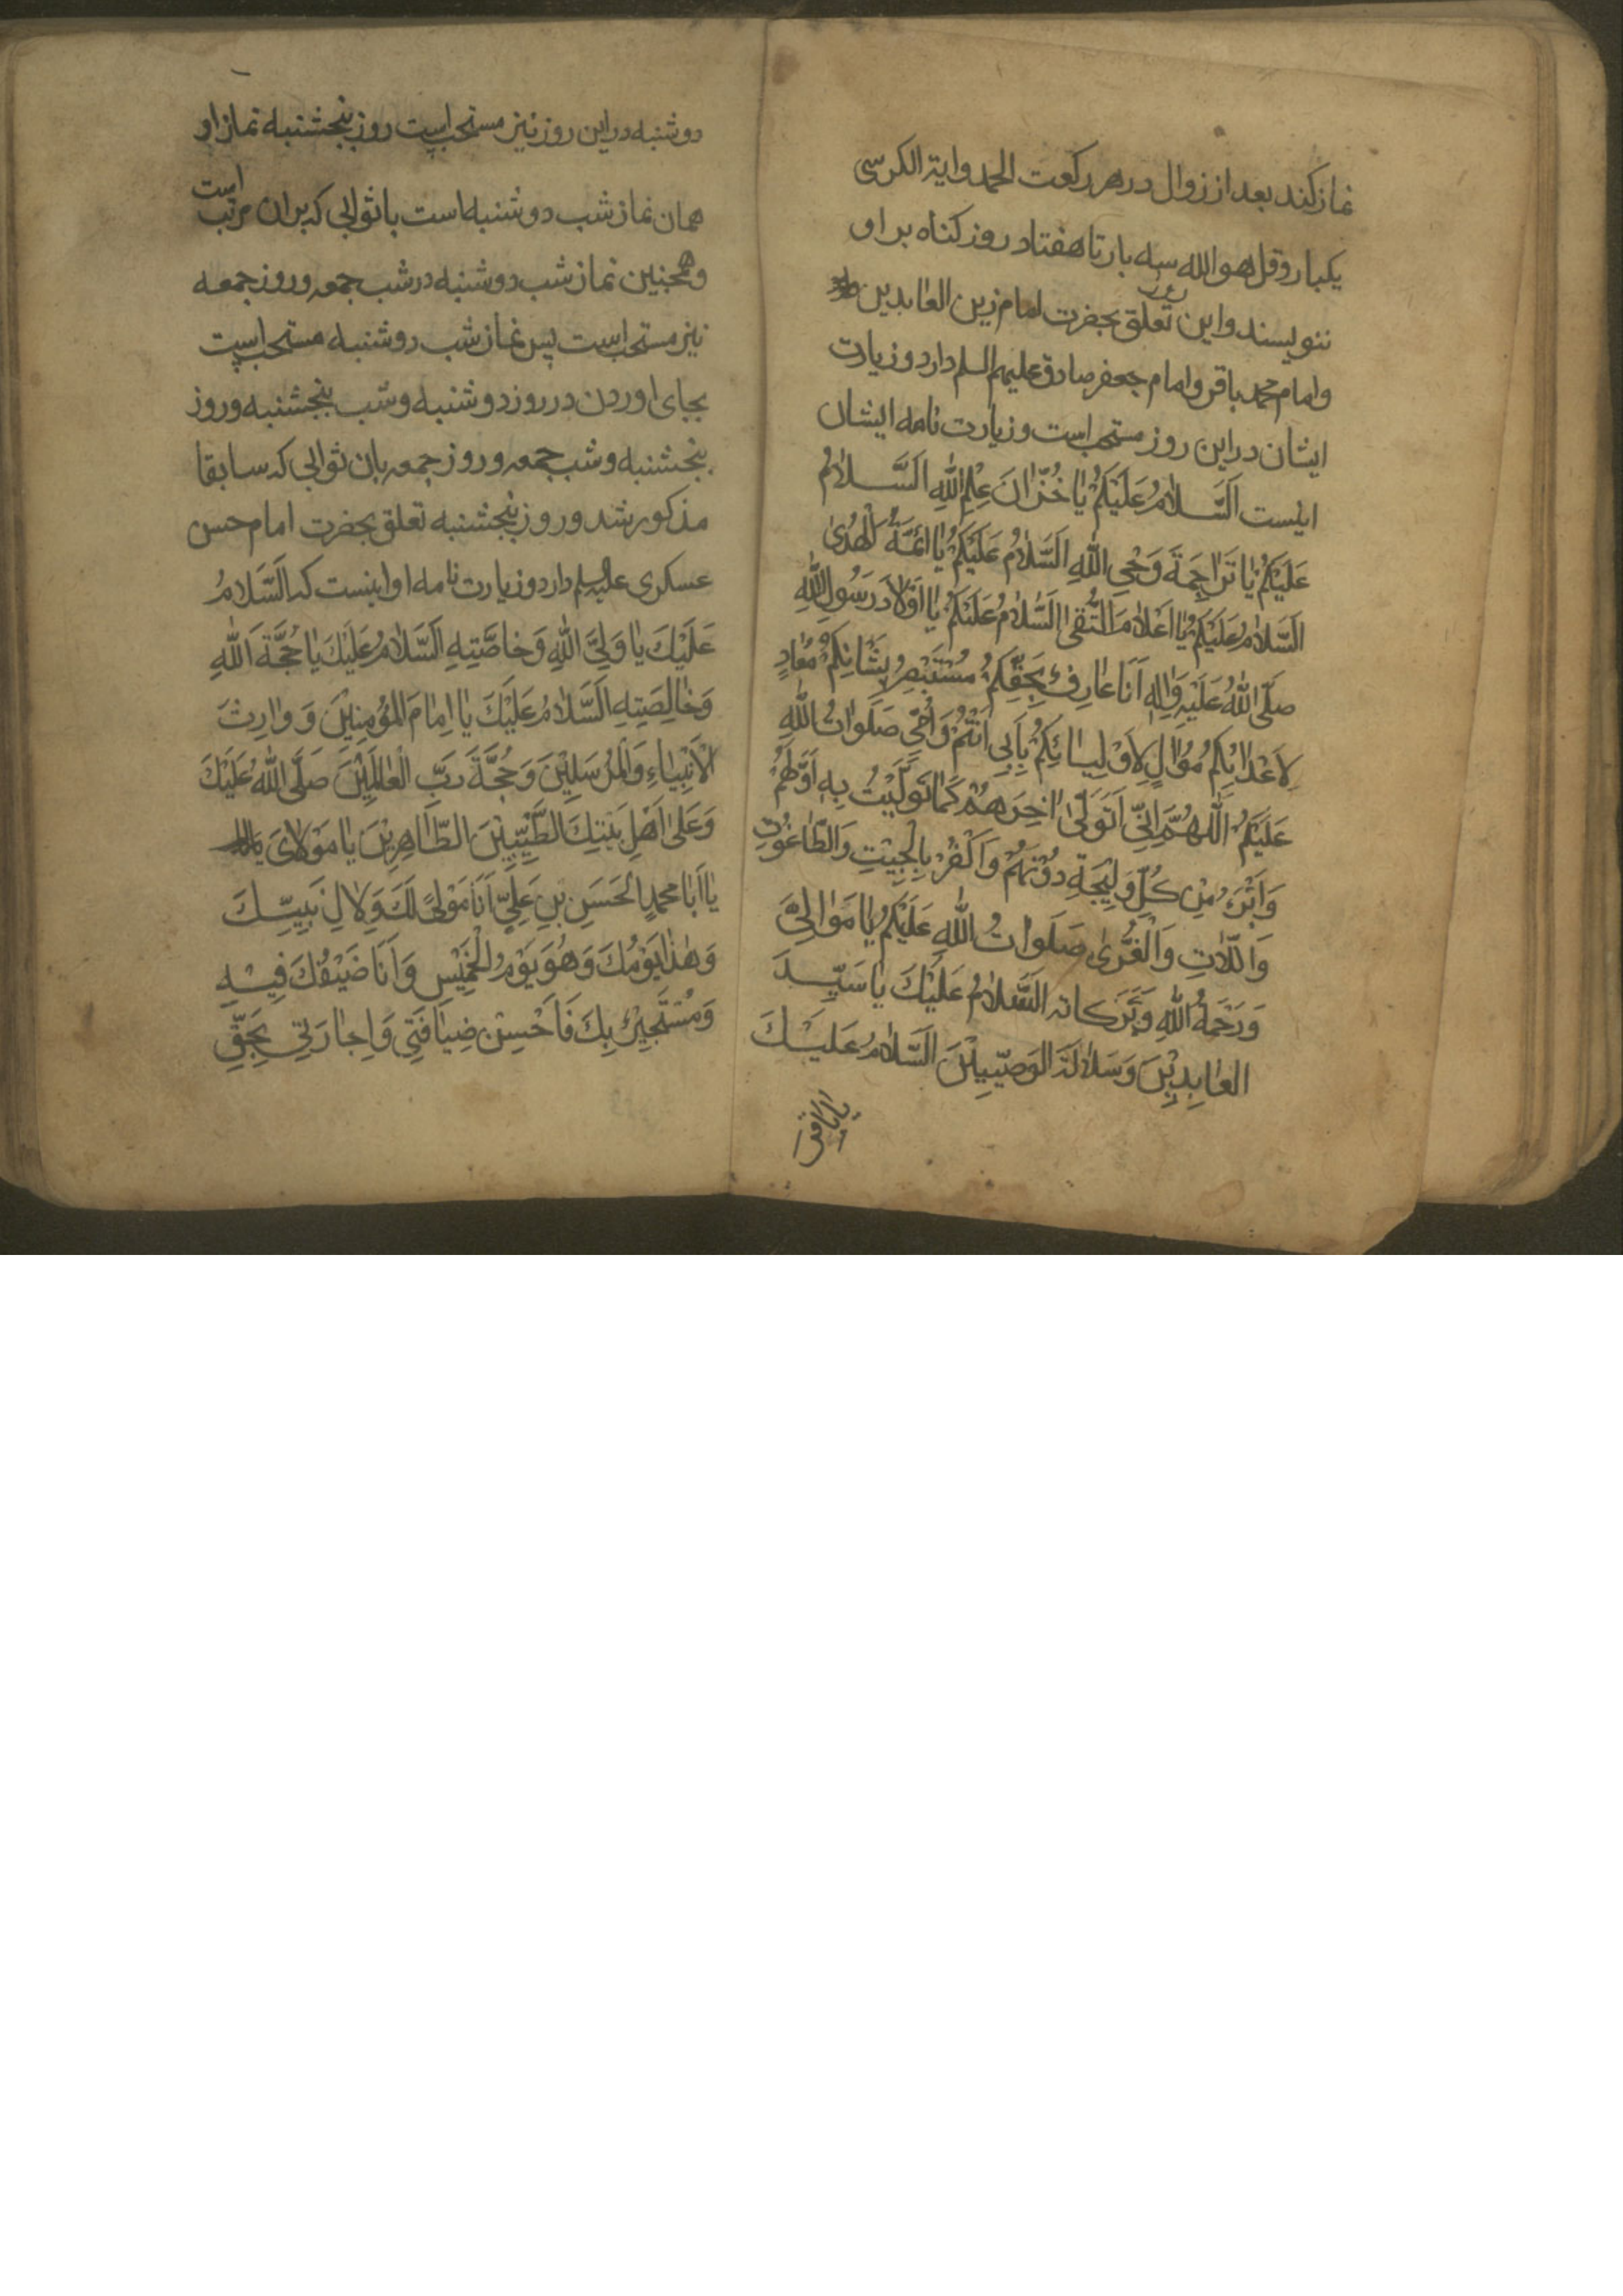 نماز کند بعد از زوال در هر رکعت الحمد و ایة الکرسی
یکبار و قل هو الله سه بار تا هفتاد روز کناه بر او
ننویسند و این روز تعلق بحضرت امام زین العابدین
و امام محمد باقر و امام جعفر صادق علیهم السلم دارد و زیارت
ایشان در این روز مستحب است و زیارت نامه ایشان
اینست اَلسَّلامُ عَلَيْكُمْ يٰا خُزّٰانَ عِلْمِ اللّٰهِ اَلسَّلامُ
عَلَيْكُمْ يٰا تَرٰاجِمَةَ وَحْىِ اللّٰهِ اَلسَّلامُ عَلَيْكُمْ يٰا ائمَّةَ الْهُدىٰ
اَلسَّلامُ عَلَيْكُمْ يٰا اَعْلٰامَ التُّقىٰ اَلسَّلامُ عَلَيْكُمْ يٰا اَوْلٰادَ رَسُولِ اللّٰهِ
صَلَّى اللّٰهُ عَلَيْهِ وَاٰلِهِ اَنَا عٰارِفٌ بِحَقِّكُمْ مُسْتَبْصِرٌ بِشَانِكُمْ مُعٰادٍ
لِاَعْدٰائِكُمْ مُوٰالٍ لِاَوْلِيٰائِكُمْ بِاَبِى اَنْتُمْ وَاُمّى صَلَوٰاتُ اللّٰهِ
عَلَيْكُمْ اَللّٰهُمَّ اِنّى اَتَوَلّىٰ اٰخِرَهُمْ كَمٰا تَوَلَّيْتُ بِهِ اَوَّلَهُمْ
وَاَبْرَءُ مِنْ كُلِّ وَليجَةٍ دُوْنَهُمْ وَاَكْفُرُ بِالْجِبْتِ وَالطّٰاغُوْتِ
وَاللّٰاتِ وَالْعُزّىٰ صَلَوٰاتُ اللّٰهِ عَلَيْكُمْ يٰا مَوٰالِىَّ
وَرَحْمَةُ اللّٰهِ وَبَرَكاته اَلسَّلامُ عَلَيْكَ يٰا سَيِّدَ
العٰابِدِيْنَ وَسَلٰالَةَ الوَصِيّيْنَ اَلسَّلامُ عَلَيْكَ
یا باقر
دوشنبه در این روز نیز مستحب است روز پنجشنبه نماز او
همان نماز شب دوشنبه است با ثوابی که بران مرتب است
و همچنین نماز شب دوشنبه در شب جمعه و روز جمعه
نیز مستحب است پس نماز شب دوشنبه مستحب است
بجای اوردن در روز دوشنبه و شب پنجشنبه و روز
پنجشنبه و شب جمعه و روز جمعه بان ثوابی که سابقا
مذکور شد و روز پنجشنبه تعلق بحضرت امام حسن
عسکری علیه السلم دارد و زیارت نامه او اینست که اَلسَّلَامُ
عَلَيْكَ يٰا وَلِيَّ اللّٰهِ وَخٰاصَّتِهِ اَلسَّلَامُ عَلَيْكَ يٰا حُجَّةَ اَللّٰهِ
وَخٰالِصَتِهِ اَلسَّلَامُ عَلَيْكَ يٰا اِمٰامَ الْمُؤْمِنِيْنَ وَ وٰارِثَ
الْاَنْبِيٰاءِ وَالْمُرْسَلِيْنَ وَحُجَّةَ رَبِّ الْعٰالَمِيْنَ صَلَّى اللّٰهُ عَلَيْكَ
وَعَلىٰ اَهْلِ بَيْتِكَ الطَّيِّبِيْنَ الطّٰاهِرِيْنَ يٰا مَوْلٰاىَ
يٰا اَبٰا مُحَمَّدٍ الْحَسَنِ بْنِ عَلِيٍّ اَنَا مَوْلىً لَكَ وَلِاٰلِ نَبِيِّكَ
وَهٰذٰا يَوْمُكَ وَهُوَ يَوْمُ الْخَمِيْسِ وَاَنَا ضَيْفُكَ فِيْهِ
وَمُسْتَجِيْرٌ بِكَ فَاَحْسِنْ ضِيٰافَتِى وَاِجٰارَتِى بِحَقِّ